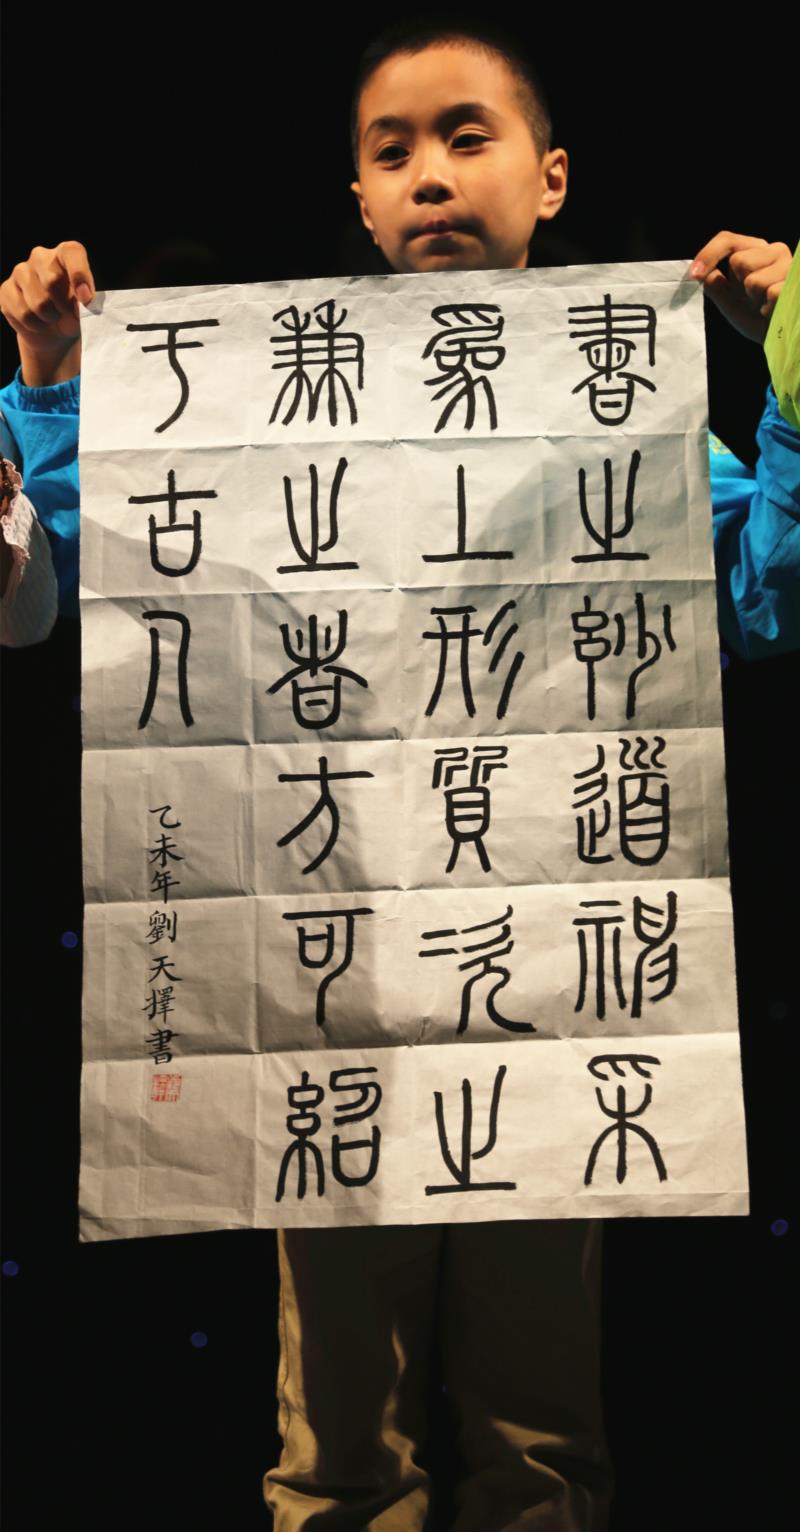 書之妙道神采
爲上形質次之
兼之者方可紹
于古人
乙未年劉天擇書